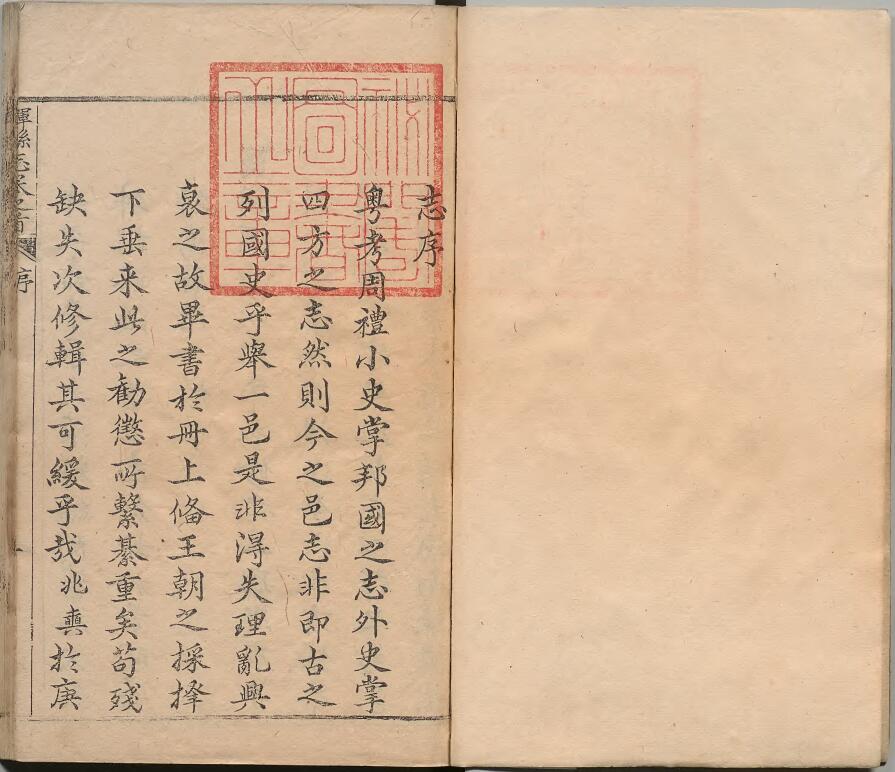 志序
粵考周禮小史掌邦國之志外史掌
四方之志然則今之邑志非即古之
列國史乎舉一邑是非淂失理亂興
衰之故畢書於冊上俻王朝之採擇
下垂来此之勸懲所繫綦重矣苟殘
缺失次修輯其可緩乎哉兆奭於庚
縣志卷之首 序